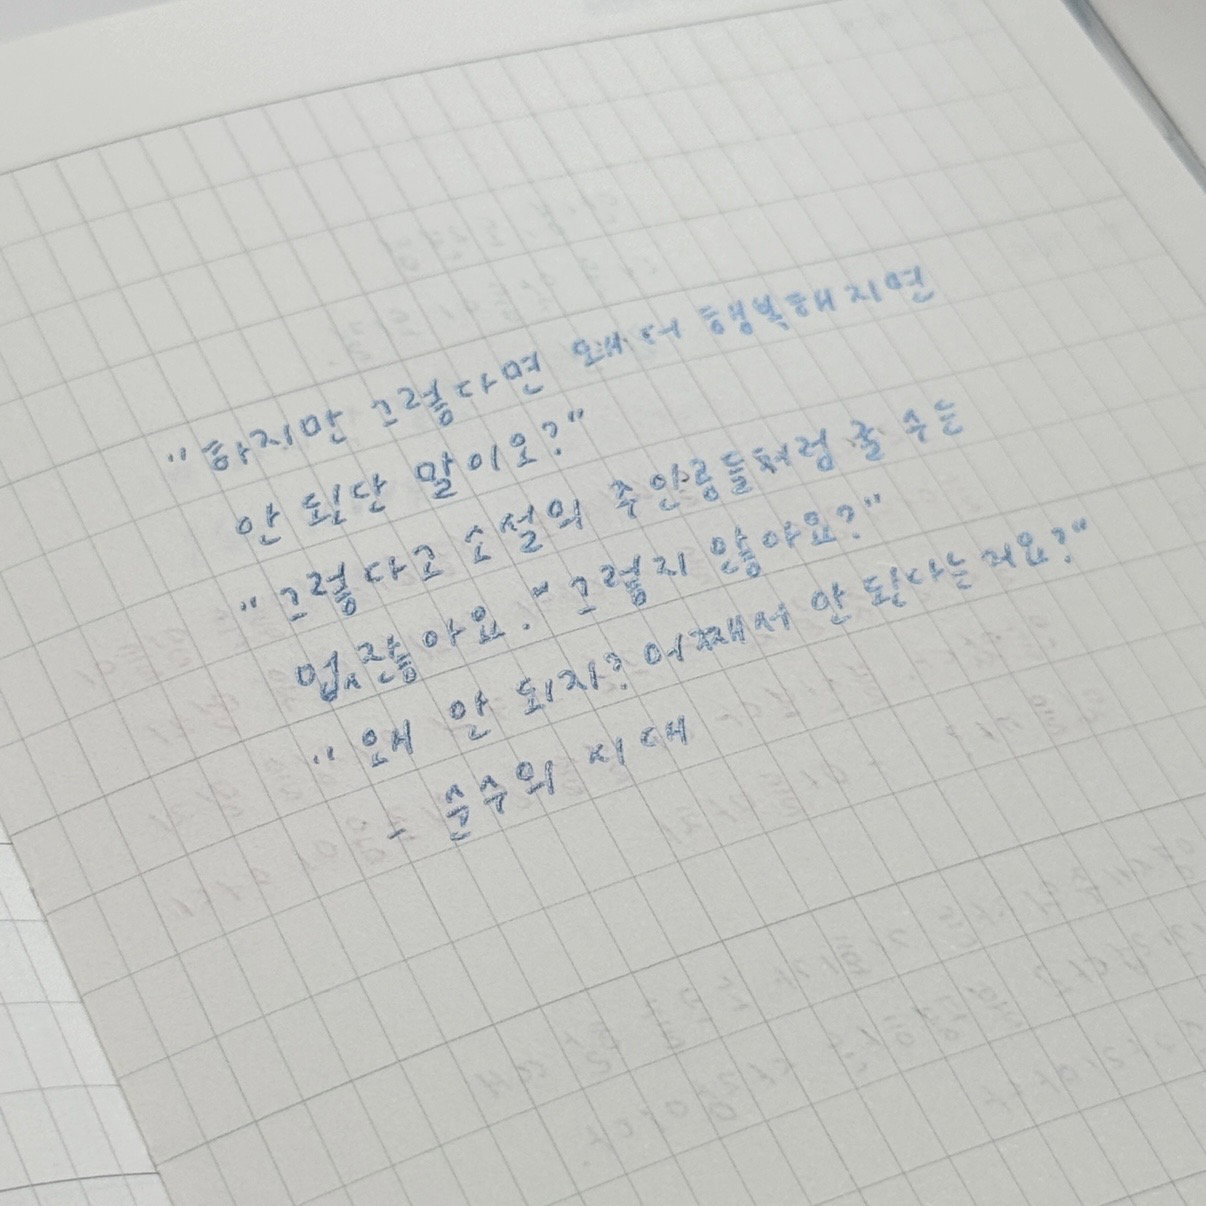 "하지만 그렇다면 왜 더 행복해지면
안 된단 말이오?"
"그렇다고 소설의 주인공들처럼 굴 수는
없잖아요. 그렇지 않아요?"
"왜 안 되지? 어째서 안 된다는 거요?"
- 순수의 시대